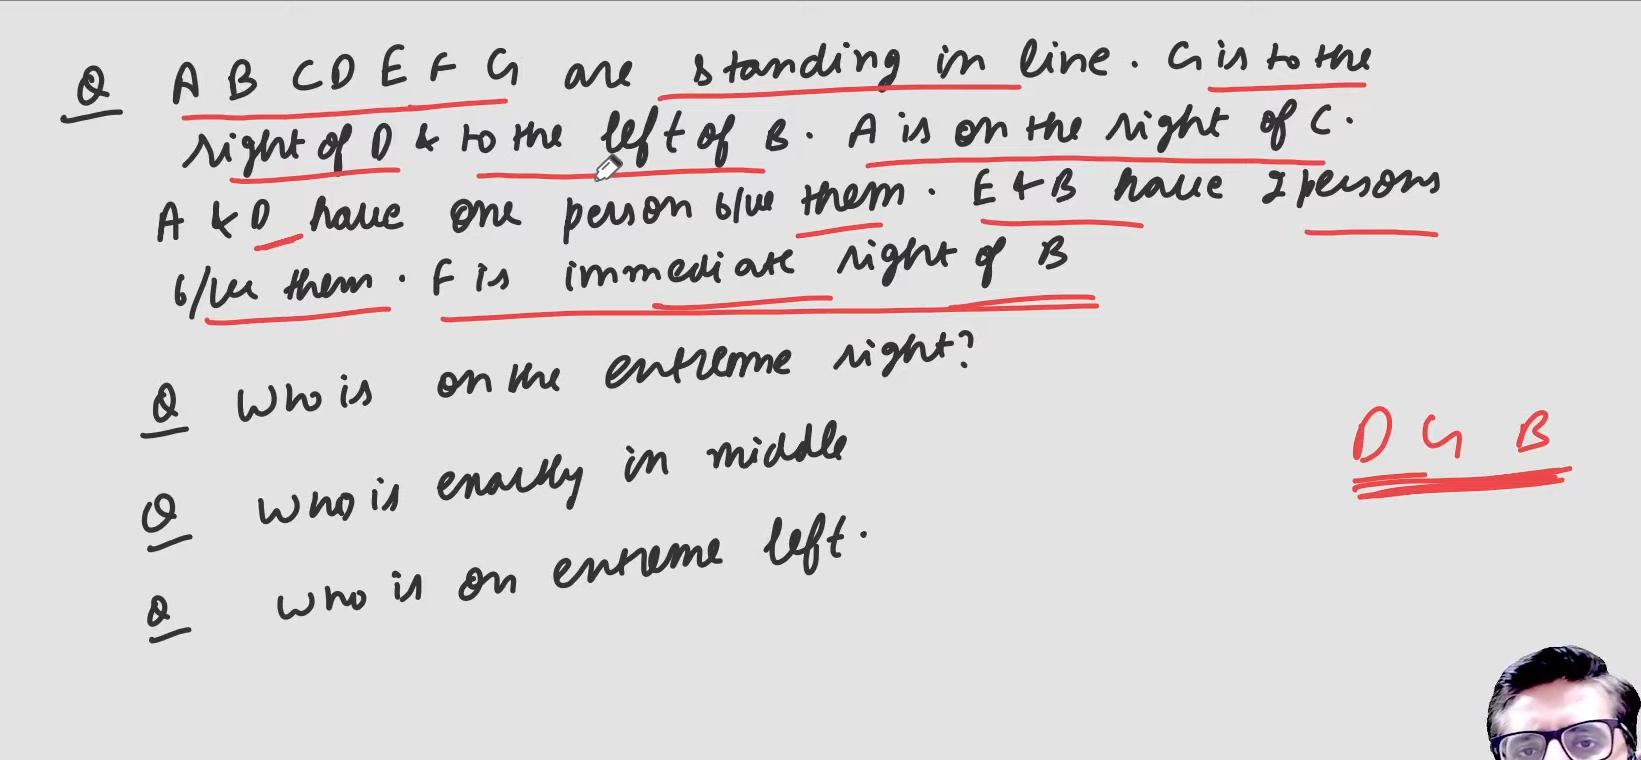 Q A B C D E F G are standing in line. G is to the
right of D & to the left of B. A is on the right of C.
A & D have one person b/w them. E & B have 2 persons
b/w them. F is immediate right of B
Q Who is on the extreme right?
Q Who is exactly in middle
Q Who is on extreme left.
D G B